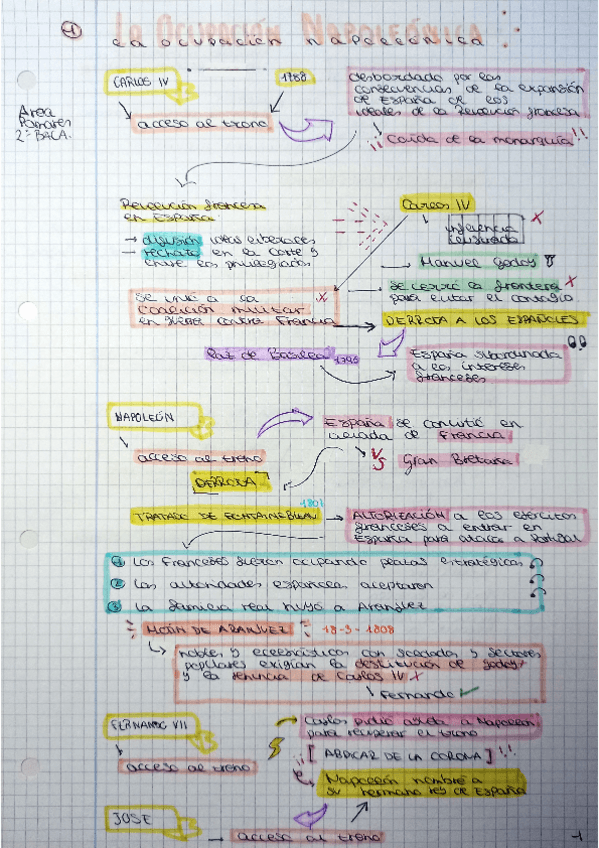 1
La Ocupación Napoleónica
La ocupación napoleónica
CARLOS IV
1788
acceso al trono
desbordado por las
consecuencias de la expansión
de España de los
ideales de la Revolución francesa
¡¡ Caída de la monarquía !!
Area
2º BACA.
Revolución francesa
en España
→ difusión ideas liberales
→ rechazo en la corte y
entre los privilegiados
Carlos IV
influencia
Manuel Godoy
se cerró la frontera
para evitar el contagio
se unió a la
coalición militar
en guerra contra Francia
DERROTA A LOS ESPAÑOLES
Paz de Basilea 1795
España subordinada
a los intereses
franceses
NAPOLEÓN
acceso al trono
España se convirtió en
aliada de Francia
VS Gran Bretaña
DERROTA
TRATADO DE FONTAINEBLEAU
AUTORIZACIÓN a los ejércitos
franceses a entrar en
España para atacar a Portugal
1 Los franceses fueron ocupando plazas estratégicas
2 Las autoridades españolas aceptaron
3 La familia real huyó a Aranjuez
MOTÍN DE ARANJUEZ 18-3-1808
nobles y eclesiásticos con soldados y sectores
populares exigían la destitución de Godoy
y la renuncia de Carlos IV
Fernando
FERNANDO VII
acceso al trono
Carlos pidió ayuda a Napoleón
para recuperar el trono
¡¡ [ ABDICAR DE LA CORONA ] !!
Napoleón nombró a
su hermano rey de España
JOSE
→ acceso al trono
1